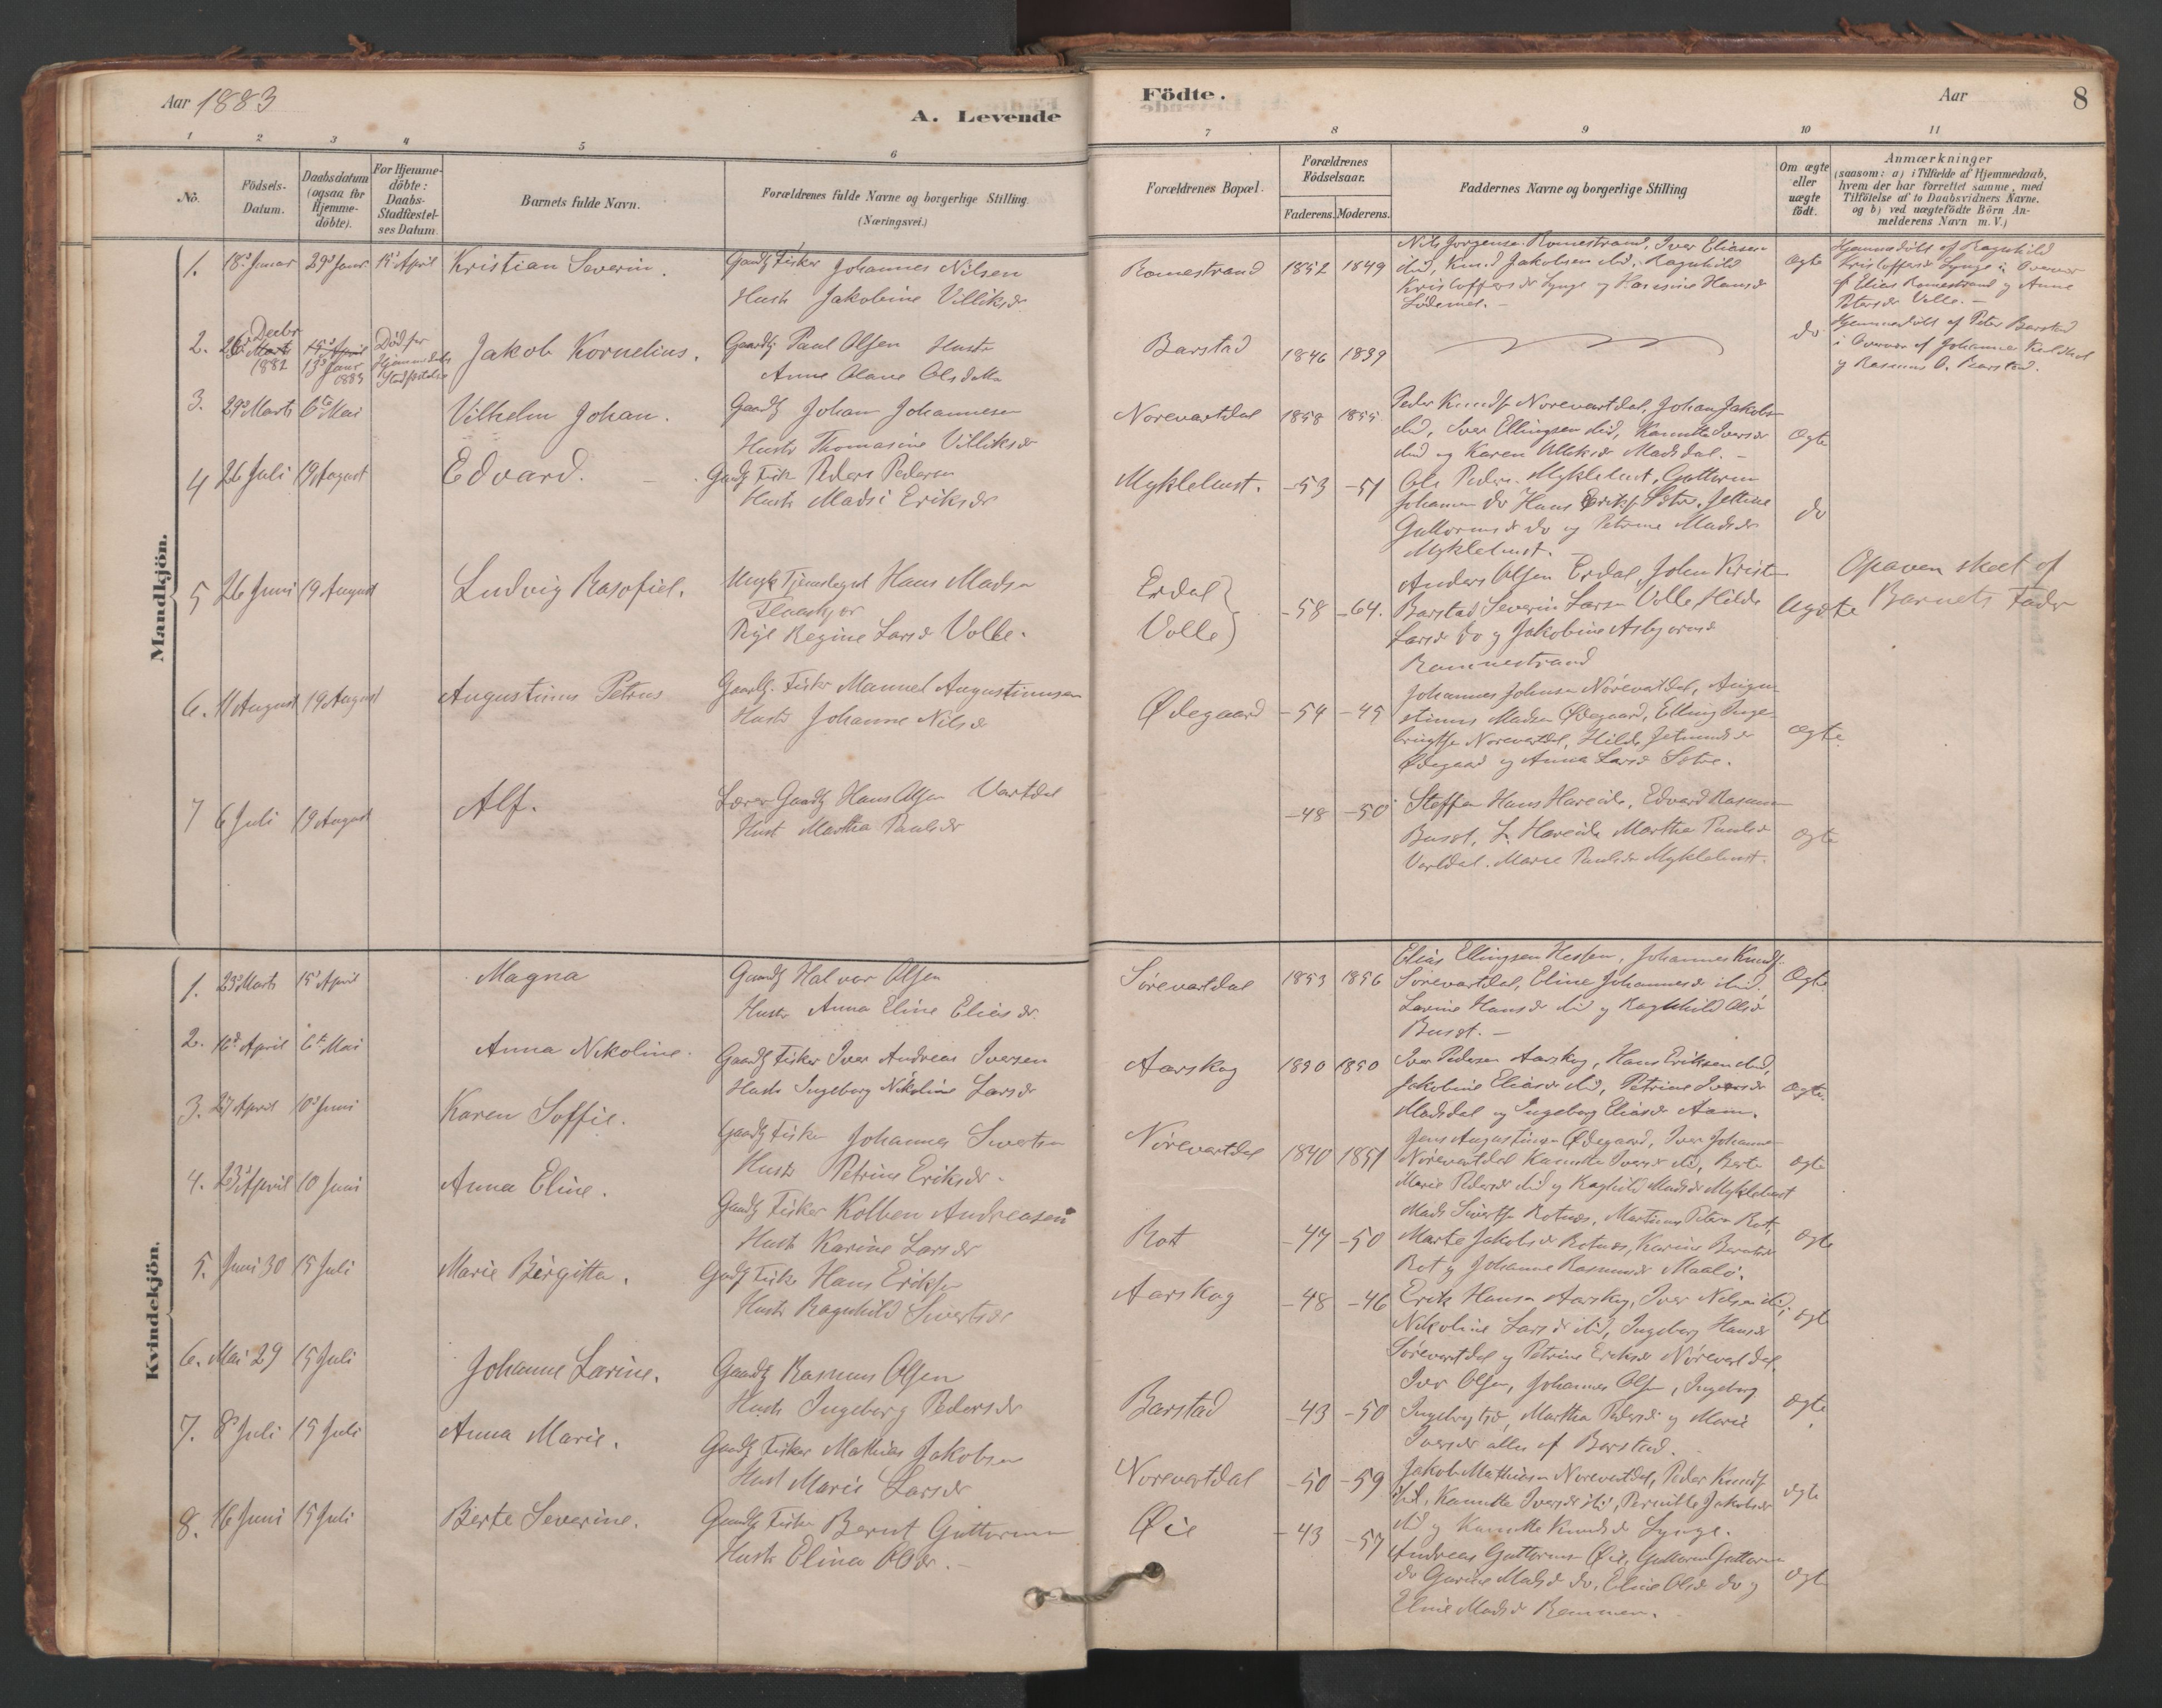 Aar 1883
A. Levende
Födte.
Aar
8
1 2 3 4 5 6
7 8 9 10 11
No.
Födsels-
Datum.
Daabsdatum
(ogsaa for
Hjemme-
döbte).
For Hjemme-
döbte:
Daabs-
Stadfæstel-
ses Datum.
Barnets fulde Navn.
Forældrenes fulde Navne og borgerlige Stilling.
(Næringsvei.)
Forældrenes Bopæl.
Forældrenes
Födselsaar.
Faderens. Moderens.
Faddernes Navne og borgerlige Stilling
Om ægte
eller
uægte
födt.
Anmærkninger
(saasom: a) i Tilfælde af Hjemmedaab,
hvem der har forrettet samme, med
Tilföielse af to Daabsvidners Navne.
og b) ved uægtefödte Börn An-
melderens Navn m. V.)
Mandkjön.
1. 18d Januar 29d Janr 15d April Kristian Severin.
Gaardbr Fisker Johannes Nilsen
Hustr Jakobine Villiksdr
Romestrand 1852 1849
Nils Jørgensen Romestrand, Iver Eliasen
ibid, Knud Jakobsen ibid, Ragnhild
Kristoffersdr Lynge og Hansine Hansdr
Ægte
Hjemmedøbt af Ragnhild
Kristoffersdr Lynge i Overvær
af Elias Romestrand og Anne
Petersdr Volle. -
2. Decbr
1882
Janr
1883
Død før
Hjemmedaabs
Stadfæstelse
Jakob Kornelius.
Gaardbr Paul Olsen Hustr
Anne Olave Olsdatter
Barstad 1846 1839
do
Hjemmedøbt af Peter Barstad
i Overvær af Johannes
og Rasmus O. Barstad.
3. 29d Marts 6te Mai Vilhelm Johan.
Gaardbr Johan Johannesen
Hustr Thomasine Villiksdr
Norevartdal 1858 1855
Peder Knudsen Norevartdal, Johan Jakobsen
ibid, Iver Ellingsen ibid, Kanutte Iversdr
ibid og Karen Madsdal. -
Ægte
4 26 Juli 19 August Edvard.
Gaardbr Fisker Peder Pedersen
Hustr Madsi Eriksdr
Myklebust. -53 -51
Ole Pedersen Myklebust, Guttorm
Johansen do Hans Eriksen Sætre, Jettine
Guttormsdr do og Petrine Madsdr
Myklebust. -
do
5 26 Juni 19 August Ludvig Rasofiel.
Ungk Tjenstegut Hans Madsen
Flaaskjær
Pige Regine Larsdr Volle.
Erdal
Volle
-58 -64.
Anders Olsen Erdal, John Krist
Barstad, Severin Larsen Volle, Hilde
Larsdr do og Jakobine Asbjørnsdr
Rommestrand
Uægte
Opgaven skeet af
Barnets Fader
6. 11 August 19 August Augustinus Petrus
Gaardbr. Fisker Manuel Augustinussen
Hustr Johanne Nilsdr
Ødegaard -54 -45
Johannes Johnsen Nørevartdal, Augu-
stinus Madsen Ødegaard, Elling Inge-
brigtsen Norevartdal, Hilde Jetmundsdr
Ødegaard og Anna Larsdr Sætre.
ægte
7 6 Juli 19 August Alf.
Lærer Gaardbr Hans Olsen Vartdal
Hustr Martha Paulsdr
-48 -50
Steffen Hans Hareide, Edvard Rasmussen
Busæt, L. Hareide Martha Paulsdr
Vartdal. Marie Paulsdr Myklebust.
ægte
Kvindekjön.
1. 23d Marts 15d April Magna
Gaardbr Halvor Olsen
Hustr Anna Eline Eliasdr.
Sørevartdal 1853 1856
Elias Ellingsen Hessen, Johannes Knudsen
Sørevartdal, Eline Johannesdr ibid.
Lavine Hansdr ibid og Ragnhild Olsdr
Busæt. -
Ægte
2. 16d April 6te Mai Anna Nikoline.
Gaardbr Fisker Iver Andreas Iversen
Hustr Ingeborg Nikoline Larsdr
Aarskog 1850 1850
Iver Pedersen Aarskog, Hans Eriksen ibid,
Jakobine Eliasdr ibid, Petrine Iversdr
Madsdal og Ingeborg Eliasdr Aam.
Ægte.
3. 27 April 10d Juni Karen Soffie.
Gaardbr Fisker Johannes Sivertsen
Hustr Petrine Eriksdr.
Nørevartdal 1840 1851
Jens Augustinsen Ødegaard, Iver Johannesen
Nørevartdal Kanutte Iversdr ibid, Berte
Marie Pedersdr ibid og Raghild Madsdr Myklebust
ægte
4. 23d April 10 Juni Anna Eline.
Gaardbr Fisker Kolben Andreasen
Hustr Karine Larsdr
Rot -47 -50
Mads Sivertsen Rotnes, Martinus Petersen Rot,
Marte Jakobsdr Rotnes, Karine Berntsdr
Rot og Johanne Rasmusdr Maalø.
Ægte
5. Juni 30 15 Juli Marie Birgitta.
Gaardbr Fisker Hans Eriksen
Hustr Ragnhild Sivertsdr
Aarskog -48 -46
Erik Hansen Aarskog, Iver Nelsen ibid,
Nikoline Larsdr ibid, Ingeborg Hansdr
Sørevartdal og Petrine Eriksdr Nørevartdal,
ægte
6. Mai 29 15 Juli Johanne Larine.
Gaardbr Rasmus Olsen
Hustr Ingeborg Pedersdr
Barstad -43 -50
Iver Olsen, Johannes Olsen, Ingeborg
Ingebrigtsdr, Martha Pedersdr og Marie
Iversdr alle af Barstad.
Ægte
7. 8d Juli 15 Juli Anna Marie.
Gaardbr Fisker Mathias Jakobsen
Hustr Marie Larsdr
Norevartdal -50 -59
Jakob Mathiasen Norevartdal, Peder Knudsen
ibid, Kanutte Iversdr ibid, Pernille Jakobsdr
ibid og Kanutte Knudsdr Lynge.
ægte
8. 16 Juni 15 Juli Berte Severine.
Gaardbr Fisker Bernt Guttormsen
Hustr Elina Olsdr. -
Øie -43 -57
Andreas Guttormsen Øie, Guttorm Guttormsen
do Gurine Madsdr do, Eline Olsdr do og
Eline Madsdr Remmen.
ægte